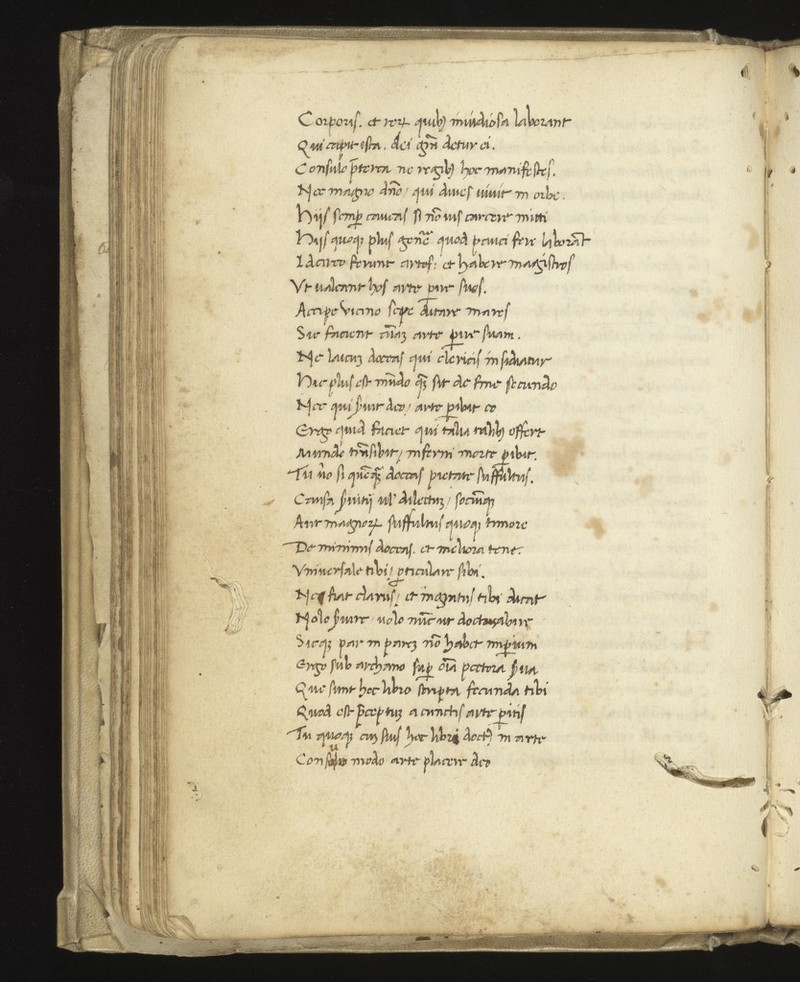 Corporis. et reꝝ quibꝫ inuidiosa laborant
Qui capit ista. dei gr̄a detur ei.
Consulo p̄terea ne regibꝫ hoc manifestes.
Nec magno dn̄o / qui diues uiuit in orbe.
Hijs semꝑ caueas si nō uis carcere mitti
Hijs quoqꝫ plus quod pauci fere laborāt
Idcirco ferunt artes: et habere magistros
Vt ualeant hos arte ꝑire suos.
Accipe Vicino sepe ditare mares
Sic facient arte ꝑire suam.
Ne laicum doceas qui clericis insidiatur
Hic plus est mūdo qꝫ sit de fine secundo
Nec qui s̄uit deo / arte ꝑibit eo
Ergo quid faciet qui talia talibꝫ offert
Mundo trānsibit / inferni morte ꝑibit.
Tu u̇o si doceas pietate suffultus.
Causa s̄uitij ul' dilectuꝫ / sociūqꝫ
Aut magnoꝝ suffultus quoqꝫ timore
De minimis doceas. et meliora tene.
Vniuersale tibi / ꝑticulare sibi.
Ne fiat clarus / et ingratus tibi dicat
Nolo s̄uire uolo nūc ut
Sicqꝫ par in pareꝫ nō habet imꝑium
Ergo sub archano suꝑ oīa pectora s̄ua
Que sunt hoc libro scripta fecunda tibi
Quod est p̄ceptuꝫ a cunctis arte ꝑitis
Tu quoqꝫ cuꝫ suis hoc libri in arte
Consulo modo arte placere deo